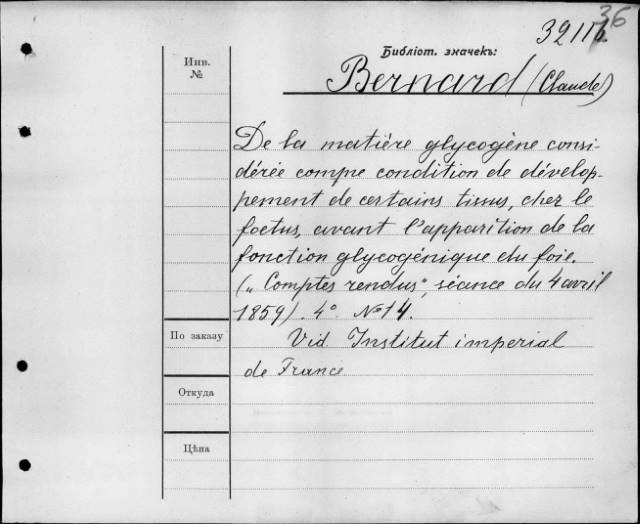 36
32116.
Библіот. значекъ:
Инв.
№
Bernard (Claude)
De la matiére glycogène consi-
dérée compe condition de dévelop-
pement de certains tissus, chez le
foetus, avant l'apparition de la
fonction glycogénique du foie.
(„Comptes rendus", séance du 4 avril
1859). 4° № 14.
По заказу
Vid. Institut imperial
de France
Откуда
Цѣна